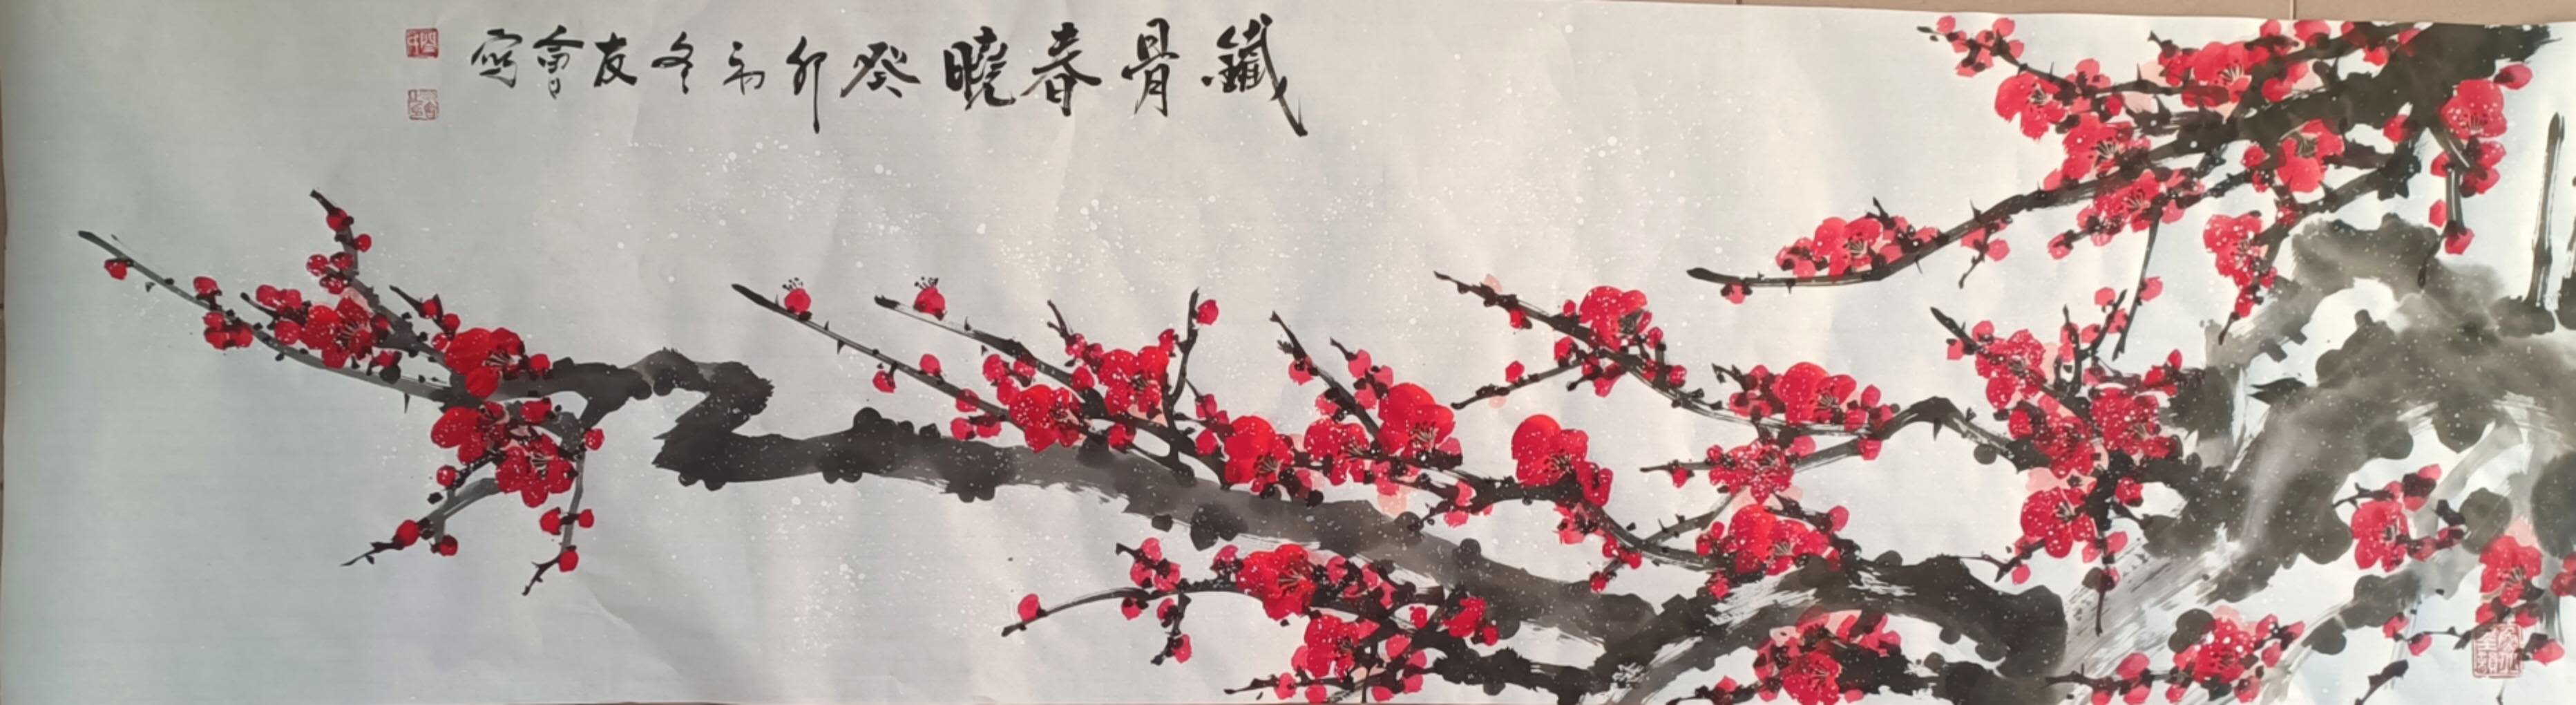 鐵骨春曉癸卯初冬友會寫